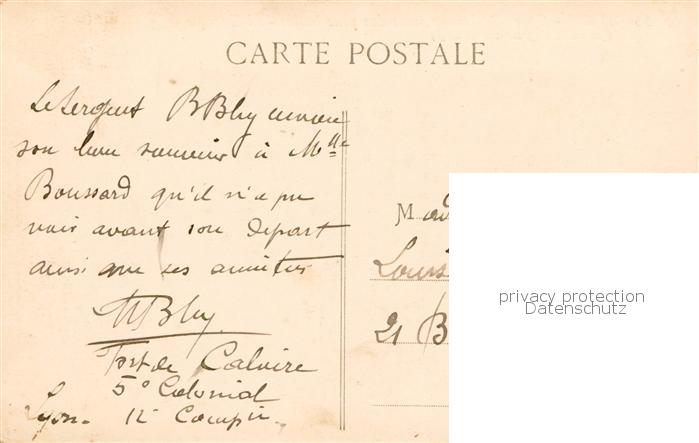 CARTE POSTALE
Le Sergent BBly envoie
son bon souvenir à Mlle
Boussard qu'il n'a pu
voir avant son depart
ainsi que ses amitiés
Bly
Fort de Caluire
5° Colonial
Lyon. 12e Compie
M
Louis
21 B
privacy protection
Datenschutz